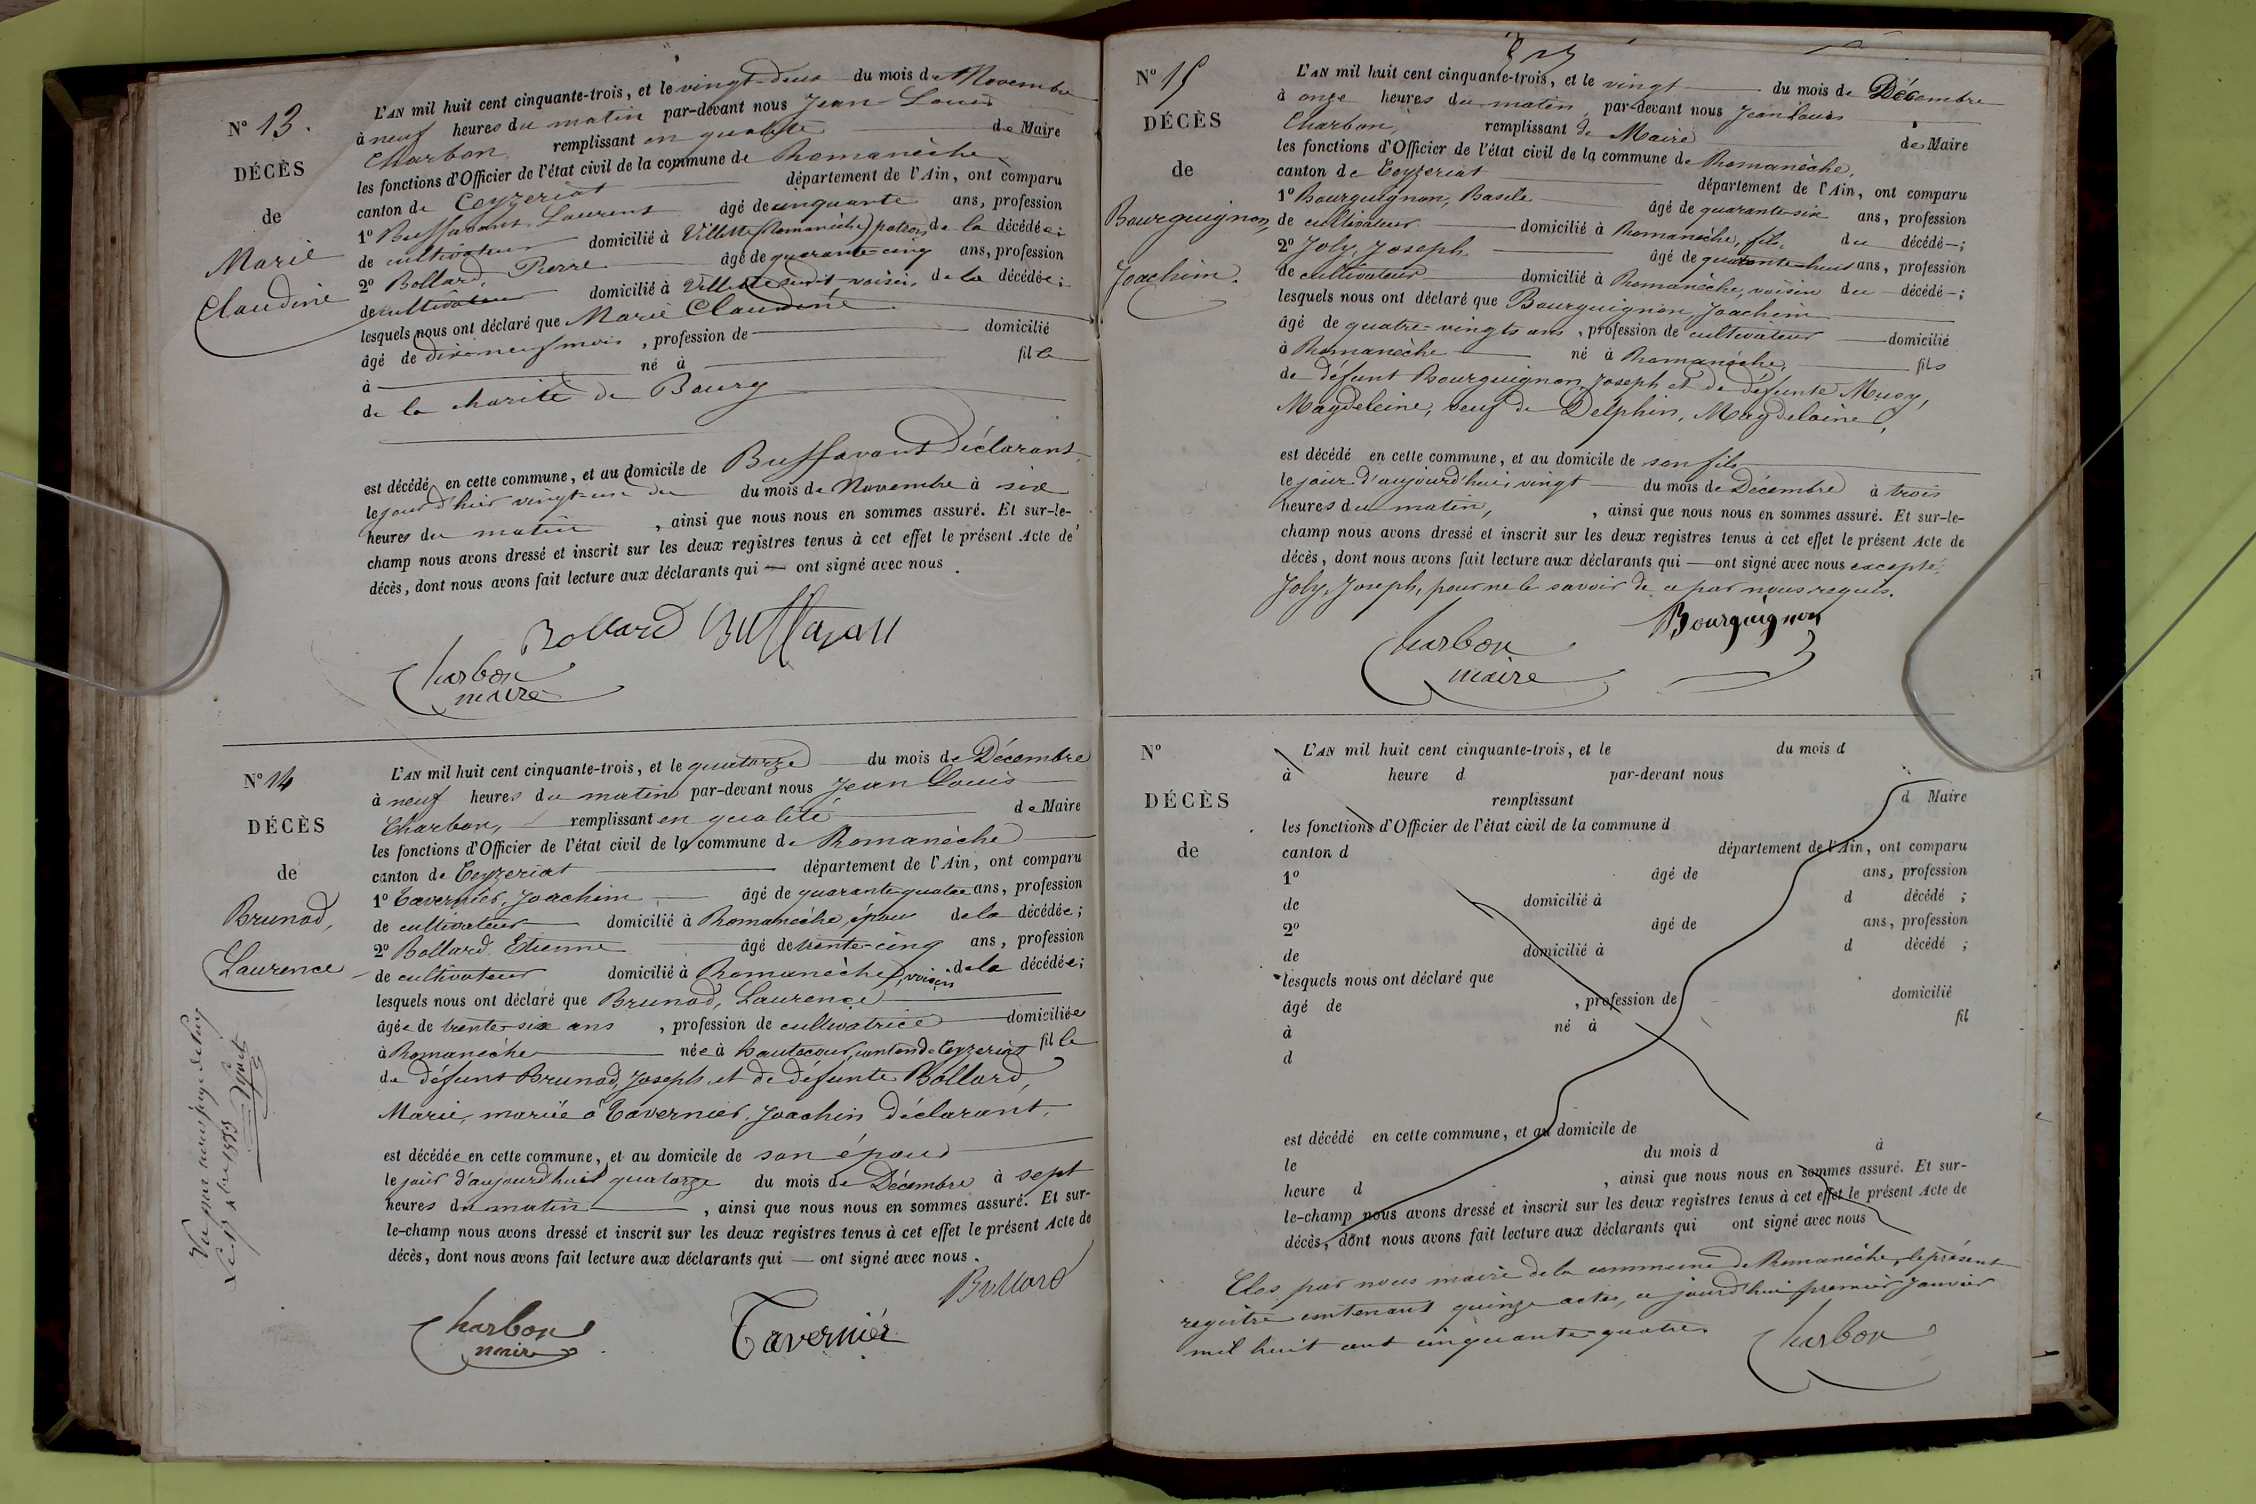 N° 13.
DÉCÈS
de
Marie
Claudine
L'AN mil huit cent cinquante-trois, et le vingt-deux du mois de Novembre
à neuf heures du matin par-devant nous Jean-Louis
Charbon, remplissant en qualité de Maire
les fonctions d'Officier de l'état civil de la commune de Romanèche
canton de Ceyzeriat département de l'Ain, ont comparu
1° Buffavant Laurent âgé de cinquante ans, profession
de cultivateur domicilié à Villette (Romanèche) patron de la décédée;
2° Bollard, Pierre âgé de quarante-cinq ans, profession
de cultivateur domicilié à Villette susdit, voisin de la décédée;
lesquels nous ont déclaré que Marie Claudine
âgé de dix-neuf mois, profession de domicilié
à né à fille
de la charité de Bourg
est décédé en cette commune, et au domicile de Buffavant Déclarant,
le jour d'hier vingt-un du du mois de Novembre à six
heures du matin, ainsi que nous nous en sommes assuré. Et sur-le-
champ nous avons dressé et inscrit sur les deux registres tenus à cet effet le présent Acte de
décès, dont nous avons fait lecture aux déclarants qui — ont signé avec nous.
Bollard Buffavan
Charbon
maire
N° 14
DÉCÈS
de
Brunod,
Laurence
L'AN mil huit cent cinquante-trois, et le quatorze du mois de Décembre
à neuf heures du matin par-devant nous Jean Louis
Charbon, remplissant en qualité de Maire
les fonctions d'Officier de l'état civil de la commune de Romanèche
canton de Ceyzeriat département de l'Ain, ont comparu
1° Tavernier, Joachim âgé de quarante-quatre ans, profession
de cultivateur domicilié à Romanèche, époux de la décédée;
2° Bollard, Etienne âgé de trente-cinq ans, profession
de cultivateur domicilié à Romanèche, voisin de la décédée;
lesquels nous ont déclaré que Brunod, Laurence
âgée de trente-six ans, profession de cultivatrice domiciliée
à Romanèche née à hautecour, canton de Ceyzeriat fille
de défunt Brunod, Joseph et de défunte Bollard,
Marie, mariée à Tavernier, Joachin Déclarant,
est décédée en cette commune, et au domicile de son époux
le jour d'aujourd'hui quatorze du mois de Décembre à sept
heures du matin, ainsi que nous nous en sommes assuré. Et sur-
le-champ nous avons dressé et inscrit sur les deux registres tenus à cet effet le présent Acte de
décès, dont nous avons fait lecture aux déclarants qui — ont signé avec nous.
Bollard
Charbon
maire
Tavernier
Vu par nous juge de
Le 1853
N° 15
DÉCÈS
de
Bourguignon,
Joachim.
L'AN mil huit cent cinquante-trois, et le vingt du mois de Décembre
à onze heures du matin, par-devant nous Jean Louis
Charbon, remplissant de Maire de Maire
les fonctions d'Officier de l'état civil de la commune de Romanèche,
canton de Ceyzeriat département de l'Ain, ont comparu
1° Bourguignon, Basile âgé de quarante-six ans, profession
de cultivateur domicilié à Romanèche, fils du décédé—;
2° Joly, Joseph âgé de quarante-huit ans, profession
de cultivateur domicilié à Romanèche, voisin du décédé—;
lesquels nous ont déclaré que Bourguignon, Joachim
âgé de quatre-vingts ans, profession de cultivateur domicilié
à Romanèche né à Romanèche, fils
de défunt Bourguignon, Joseph et de défunte Muoy,
Magdeleine, veuf de Delphin, Magdelaine,
est décédé en cette commune, et au domicile de son fils
le jour d'aujourd'hui, vingt du mois de Décembre à trois
heures du matin, ainsi que nous nous en sommes assuré. Et sur-le-
champ nous avons dressé et inscrit sur les deux registres tenus à cet effet le présent Acte de
décès, dont nous avons fait lecture aux déclarants qui — ont signé avec nous excepté
Joly, Joseph, pour ne le savoir de ce par nous requis.
Bourguignon
Charbon
maire
N°
DÉCÈS
de
L'AN mil huit cent cinquante-trois, et le du mois d
à heure d par-devant nous
remplissant d Maire
les fonctions d'Officier de l'état civil de la commune d
canton d département de l'Ain, ont comparu
1° âgé de ans, profession
de domicilié à d décédé ;
2° âgé de ans, profession
de domicilié à d décédé ;
lesquels nous ont déclaré que
âgé de , profession de domicilié
à né à fil
d
est décédé en cette commune, et au domicile de
le du mois d à
heure d , ainsi que nous nous en sommes assuré. Et sur-
le-champ nous avons dressé et inscrit sur les deux registres tenus à cet effet le présent Acte de
décès, dont nous avons fait lecture aux déclarants qui ont signé avec nous
Clos par nous maire de la commune de Romanèche, le présent
registre contenant quinze actes, ce jourd'hui premier Janvier
mil huit cent cinquante-quatre.
Charbon